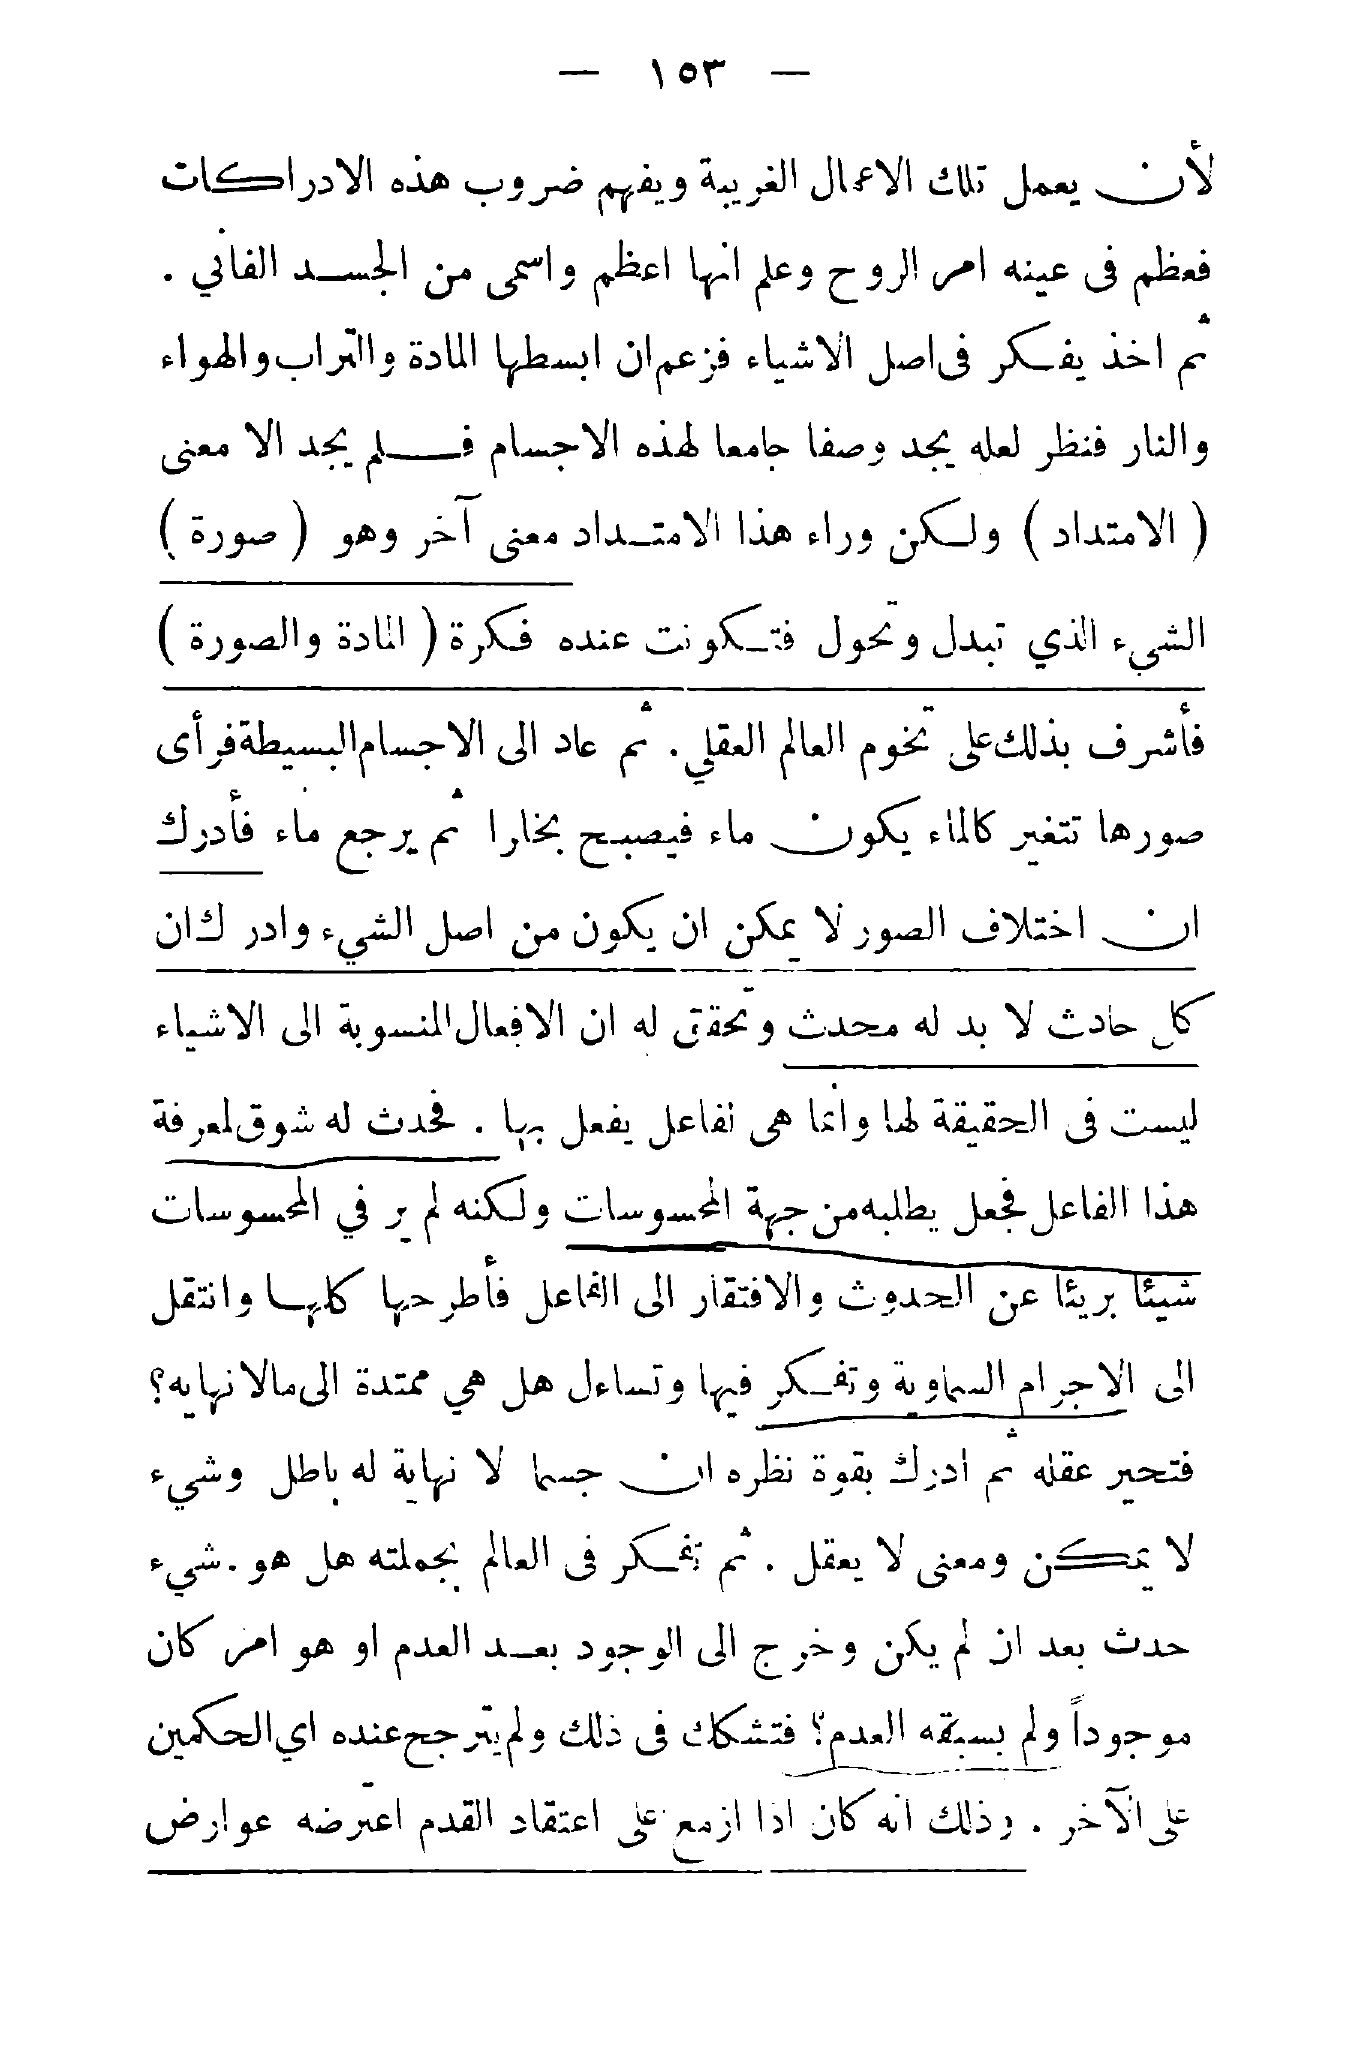 — ١٥٣ —
لأن يعمل تلك الاعمال الغريبة ويفهم ضروب هذه الادراكات
فعظم فى عينه امر الروح وعلم انها اعظم واسمى من الجسد الفاني .
ثم اخذ يفكر فى اصل الاشياء فزعم ان ابسطها المادة والتراب والهواء
والنار فنظر لعله يجد وصفا جامعا لهذه الاجسام فلم يجد الا معنى
( الامتداد ) ولكن وراء هذا الامتداد معنى آخر وهو ( صورة )
الشيء الذي تبدل وتحول فتكونت عنده فكرة ( المادة والصورة )
فأشرف بذلك على تخوم العالم العقلي . ثم عاد الى الاجسام البسيطة فرأى
صورها تتغير كالماء يكون ماء فيصبح بخارا ثم يرجع ماء فأدرك
ان اختلاف الصور لا يمكن ان يكون من اصل الشيء وادرك ان
كل حادث لا بد له محدث وتحقق له ان الافعال المنسوبة الى الاشياء
ليست فى الحقيقة لها وانما هى لفاعل يفعل بها . فحدث له شوق لمعرفة
هذا الفاعل فجعل يطلبه من جهة المحسوسات ولكنه لم ير في المحسوسات
شيئا بريئا عن الحدوث والافتقار الى الفاعل فأطرحها كلها وانتقل
الى الاجرام السماوية وتفكر فيها وتساءل هل هي ممتدة الى مالا نهايه؟
فتحير عقله ثم ادرك بقوة نظره ان جسما لا نهاية له باطل وشيء
لا يمكن ومعنى لا يعقل . ثم تفكر فى العالم بجملته هل هو . شيء
حدث بعد ان لم يكن وخرج الى الوجود بعد العدم او هو امر كان
موجوداً ولم يسبقه العدم؟ فتشكك فى ذلك ولم يترجح عنده اي الحكمين
على الآخر . وذلك انه كان اذا ازمع على اعتقاد القدم اعترضه عوارض